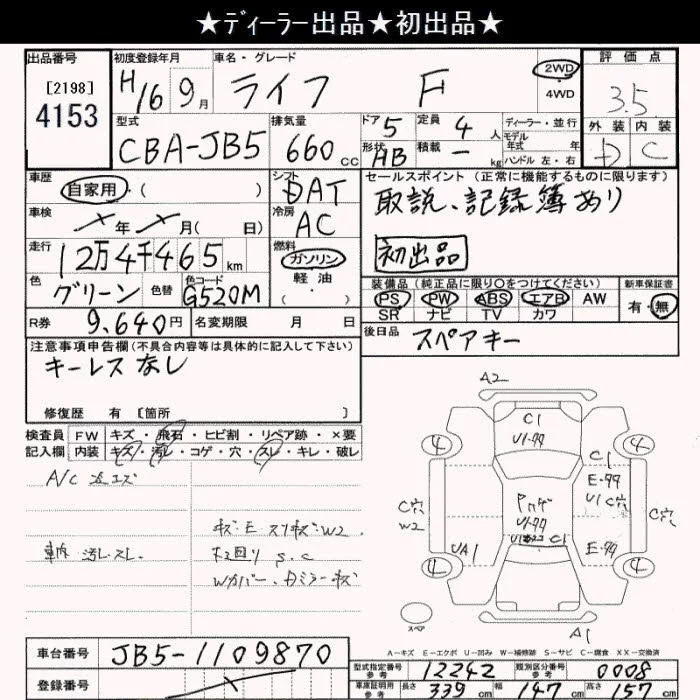 ★ディーラー出品★初出品★
出品番号 初度登録年月 車名・グレード 評価点
[2198]
4153
H16 9月 ライフ F 2WD
・4WD
3.5
型式 排気量 ドア 定員 ディーラー・並行 外装 内装
CBA-JB5 660cc 5 4人 モデル年式 年式 D C
形状 HB 積載 - kg ハンドル 左・右
車歴 シフト セールスポイント(正常に機能するものに限ります)
自家用・( ) DAT 取説、記録簿あり
車検 冷房
×年×月( 日) AC
初出品
走行 燃料
12万4千465km ガソリン
・軽油
色 色替 色コード 装備品(純正品に限り○をつけてください) 新車保証書
グリーン G520M PS・PW・ABS・エアB・AW 有・無
SR・ナビ・TV・カワ
R券 9,640円 名変期限 月 日 後日品 スペアキー
注意事項申告欄(不具合内容等は具体的に記入して下さい)
キーレスなし
修復歴 有 [箇所
検査員 FW キズ・飛石・ヒビ割・リペア跡・×要
記入欄 内装 キズ・汚レ・コゲ・穴・スレ・キレ・破レ
A/C
キズ・E スリキズ・W2
車内 汚レ・スレ S.C
Wカバー・Dミラーキズ
A2
C1
U1-77
4 4
C1
E-77
U1 C穴
C穴
W2
C穴
U1-77
C1
UA1
E-77
4 4
スペア
A1
A-キズ E-エクボ U-凹み W-補修跡 S-サビ C-腐食 XX-交換済
車台番号 JB5-1109870
型式指定番号 参考 12242 類別区分番号 参考 0008
登録番号
車庫証明用 参考 長さ 339cm 幅 147cm 高さ